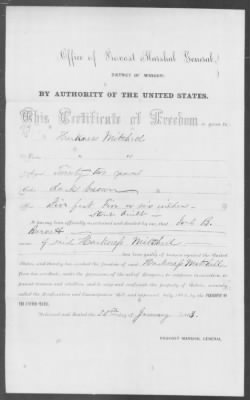 Office of Provost Marshal General,
DISTRICT OF MISSOURI
BY AUTHORITY OF THE UNITED STATES.
This Certificate of Freedom is given to
Mitchell
" "
Age Twenty two years
Color dark brown
Size five feet five or six inches
Stout built
A person duly
B.
Barrett
of said Mitchell
has been guilty of treason against the United
States, and thereby has worked the freedom of said Mitchell
from his servitude, under the provisions of the act of Congress, to suppress insurrection, to
punish treason and rebellion, and to seize and confiscate the property of Rebels,
called the Confiscation and Emancipation Bill, and approved July 1862, by the PRESIDENT OF
THE UNITED STATES.
Delivered and Dated the 28th day of January 1863.
PROVOST MARSHAL GENERAL